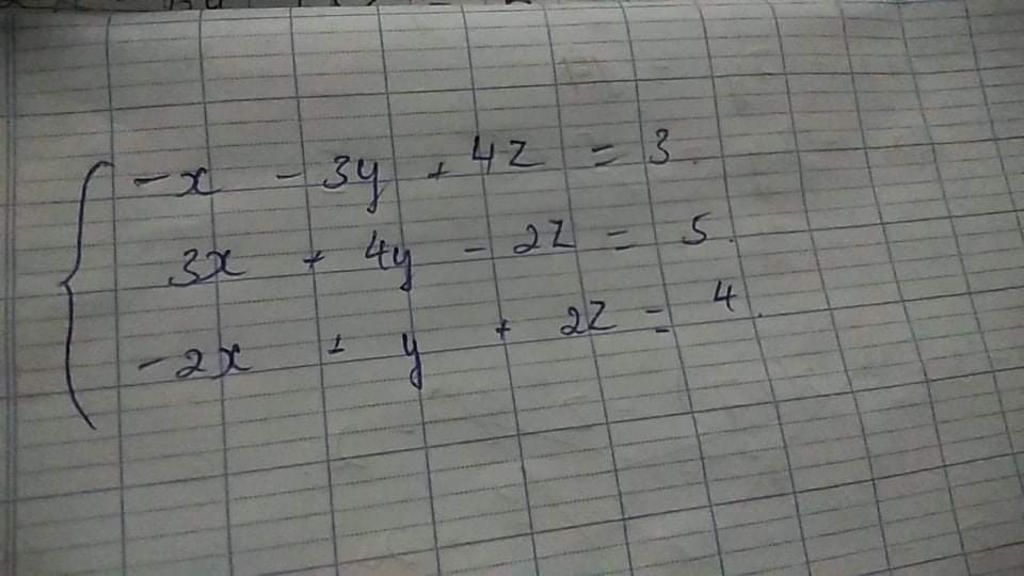 -x - 3y + 4z = 3
3x + 4y - 2z = 5
-2x + y + 2z = 4